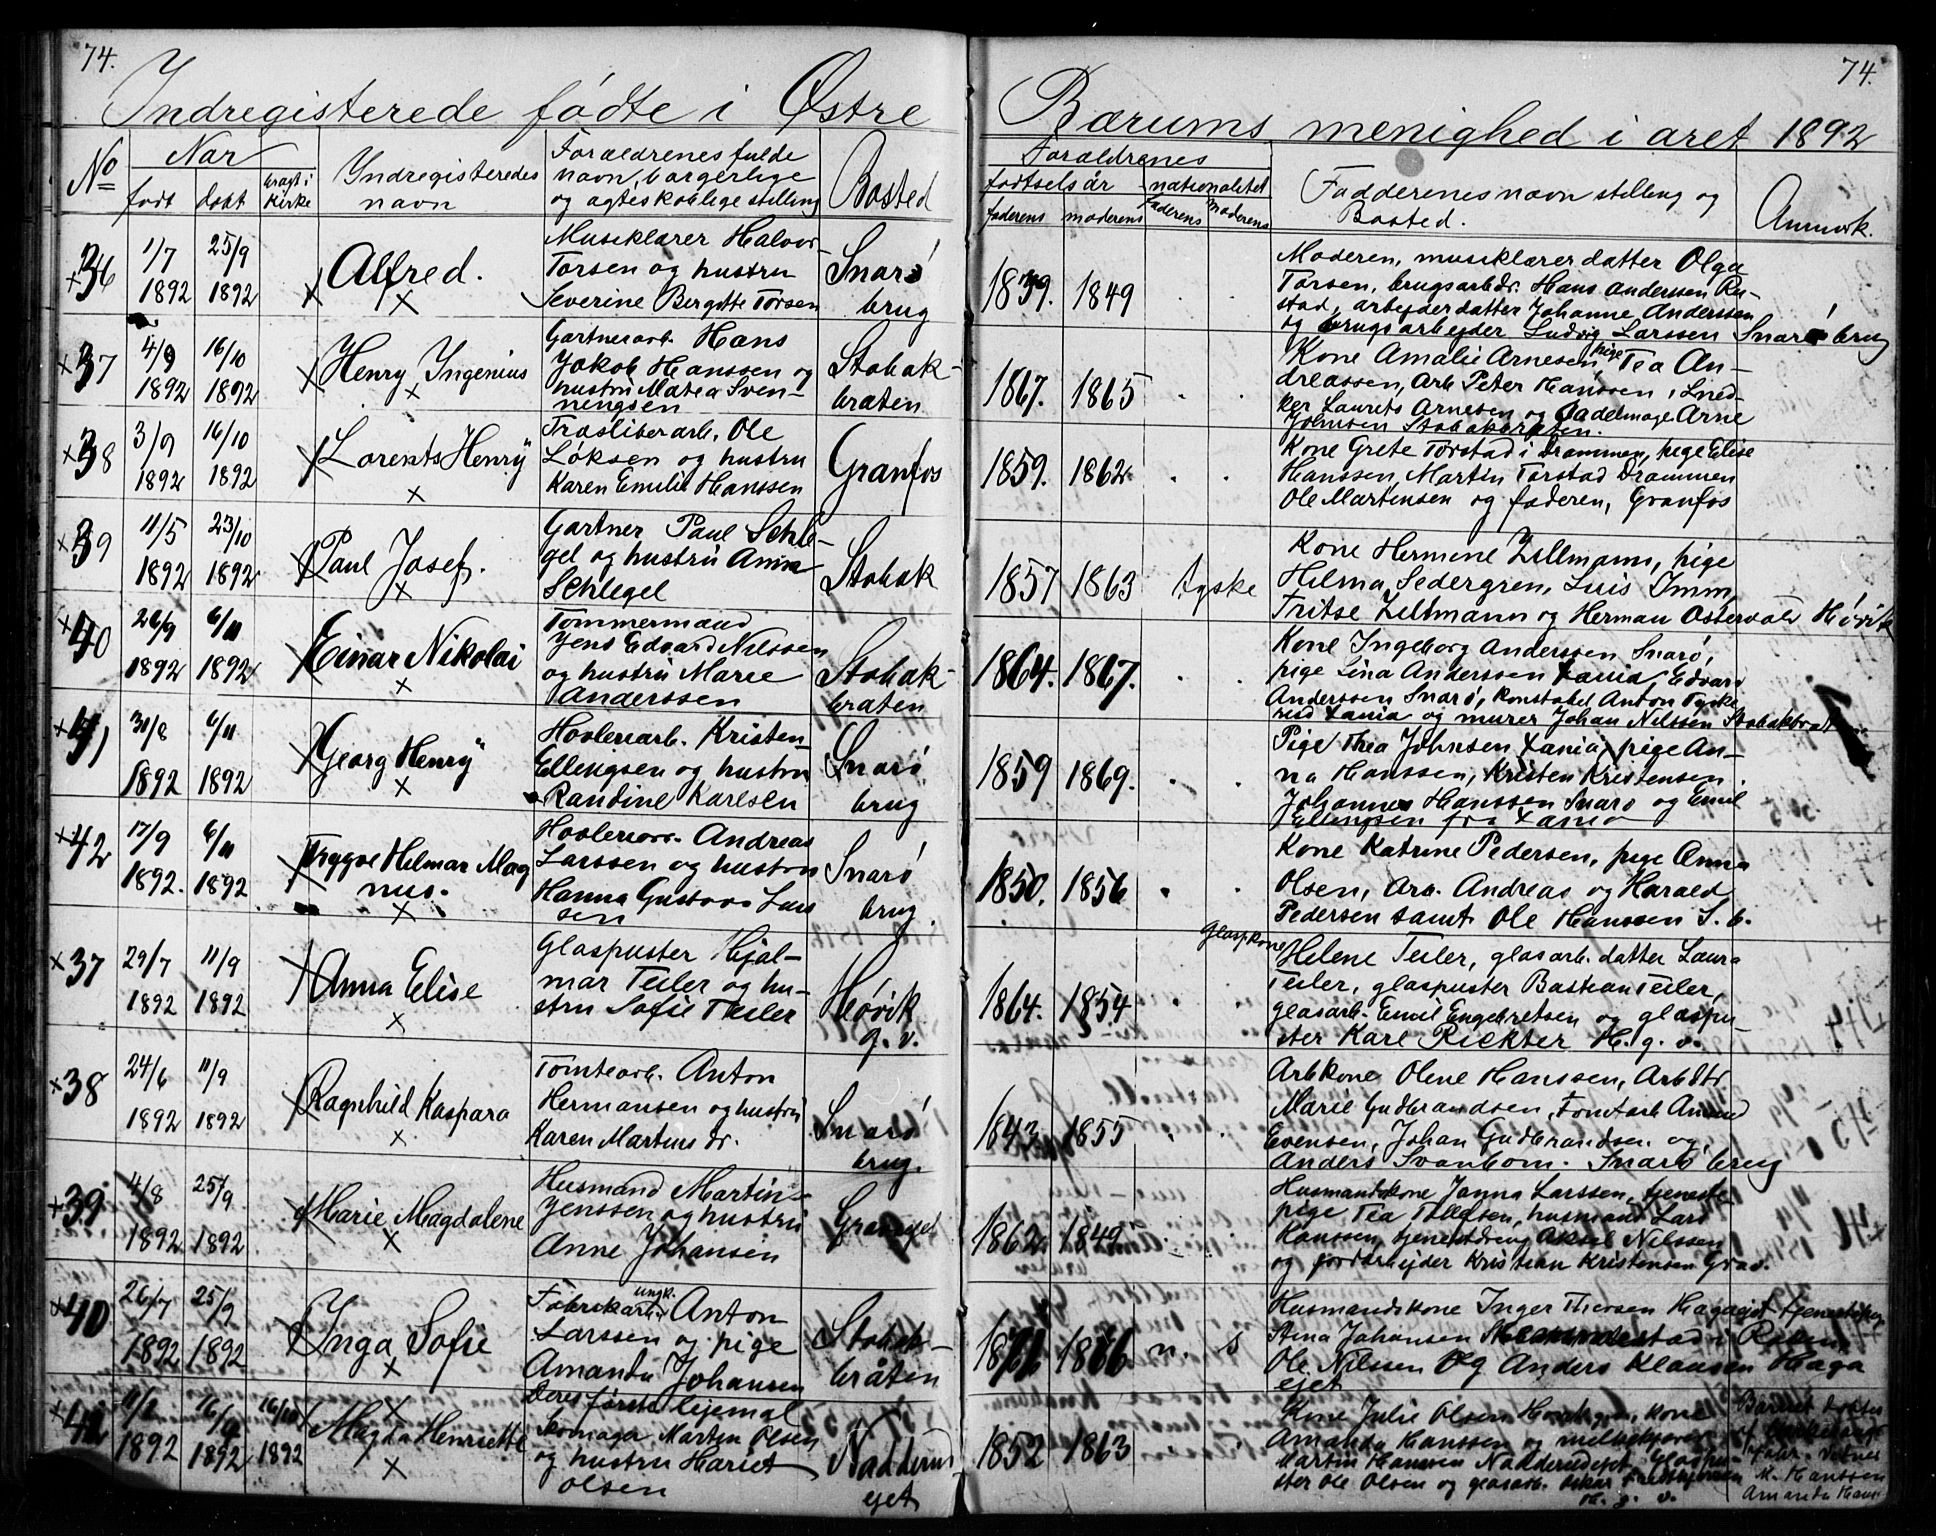 74.
74.
Indregisterede fødte i Østre
Bærums menighed i aret 1892
No
Nar
født
døbt
bragt i kirke
Indregisteredes navn
Forældrenes fulde navn, borgerlige og ægteskablige stilling
Bosted
Forældrenes
fødtselsår
nationalitet
faderens
moderens
Faderens
Moderens
Faddernes navn stilling og Bosted.
Anmærk.
36
1/7 1892
25/9 1892
Alfred.
Musiklærer Halvor
Torsen og hustru
Severine Bergitte Torsen
Snarø
brug
1839. 1849
Moderen, musiklærer datter Olga
Torsen, brugsarbdr. Hans Anderssen Ru-
stad, arbejderdatter Johanne Anderssen
og brugsarbejder Ludvig Larssen Snarø brug
37
4/9 1892
16/10 1892
Henry Ingenius
Gartnerarb. Hans
Jakob Hanssen og
hustru Matea Sven-
nengsen
Stabæk-
braten
1867. 1865
Kone Amalie Arnesen, pige Tea An-
dreassen, Arb. Peter Hanssen, Sned-
ker Laurits Arnesen og Sadelmager Arne
Johnsen Stabækbraten.
38
3/9 1892
16/10 1892
Lorents Henry
Træsliberarb. Ole
Løksen og hustru
Karen Emilie Hanssen
Granfos
1859. 1862
Kone Grete Torstad i Drammen, pige Elise
Hanssen, Martin Torstad Drammen
Ole Martensen og faderen, Granfos
39
11/5 1892
23/10 1892
Paul Josef.
Gartner Paul Schle-
gel og hustru Anna
Schlegel
Stabæk
1857 1863 tyske
Kone Hermine Zellmann, pige
Helma Sedergren, Luis Imm,
Fritse Zellmann og Herman Ostervald Høvik
40
26/9 1892
6/11 1892
Einar Nikolai
Tømmermand
Jens Edvard Nilssen
og hustru Marie
Anderssen
Stabæk-
braten
1864. 1867.
Kone Ingeborg Anderssen Snarø,
pige Lina Anderssen Xania, Edvard
Anderssen Snarø, konstabel Anton
Xania og murer Johan Nilssen
41
30/8 1892
6/11 1892
Georg Henry
Høvleriarb. Kristen
Ellingsen og hustru
Randine Karlsen
Snarø
brug
1859 1869.
Pige Thea Johnsen Xania, pige An-
na Hanssen, Kristen Kristensen
Johannes Hanssen Snarø og Emil
Ellingsen fra Xania
42
17/9 1892.
6/11 1892
Tryggve Helmar Mag
nus.
Høvleriarb. Andreas
Larssen og hustru
Hanna Gustava Lars
sen
Snarø
brug.
1850. 1856
Kone Katrine Pedersen, pige Anna
Olsen, Arb. Andreas og Harald
Pedersen samt Ole Hanssen S. b.
37
29/7 1892
11/9 1892
Anna Elise
Glaspuster Hjal-
mar Teiler og hu-
stru Sofie Teiler
Høvik
g. v.
1864. 1854
Glaspkone
Helene Teiler, glasarb. datter Laura
Teiler, glaspuster Bastian Teiler,
glasarb. Emil Engebretsen og glaspu-
ster Karl Riekter H. g. v.
38
24/6 1892
11/9 1892
Ragnhild Kaspara
Tomtearb. Anton
Hermansen og hustru
Karen Martins dr.
Snarø
brug.
1843 1855
Arbkone Oline Hanssen, Arbdtr
Marie Gudbrandsen, Tomtarb
Evensen, Johan Gudbrandsen og
Anders Svanbom. Snarø brug
39
4/8 1892
25/9 1892
Marie Magdalene
Husmand Martin
Jenssen og hustru
Anne Johansen
1862 1849
Husmandskone Janna Larssen, tjeneste
pige Tea Tollefsen, husmand Lars
Hanssen, tjenestdreng Aksel Nilssen
og jordarbejder Kristian Kristensen Grav.
40
26/7 1892
25/9 1892
Inga Sofie
Fabrikarb. ungk. Anton
Larssen og pige
Amanda Johansen
Deres første lejemal
Stabæk-
bråten
n. s
Husmandskone Inger Thorsen Hagaejet
Stina Johansen
Ole Nilssen og Anders Klausen Haga
ejet
1892
1892
16/10 1892
Magda Henriette
Skomager Martin Olsen
og hustru Hariet
Olsen
Nadderud
ejet
1852 1863
Kone Julie Olsen, kone
Amanda Hanssen og
Martin Hanssen Nadderudejet, Glaspu-
ster Ole Olsen og glasarb. Oskar
H. g. v.
Barnet døbt
M. Hanssen
Amanda Hans